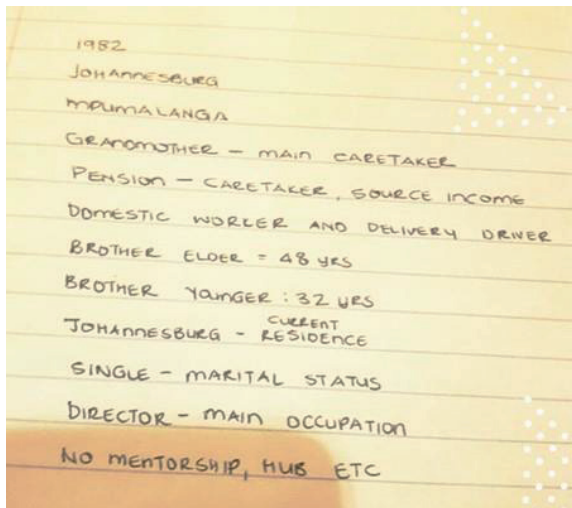 1982
JOHANNESBURG
MPUMALANGA
GRANDMOTHER - MAIN CARETAKER
PENSION - CARETAKER, SOURCE INCOME
DOMESTIC WORKER AND DELIVERY DRIVER
BROTHER ELDER = 48 YRS
BROTHER YOUNGER : 32 YRS
JOHANNESBURG - CURRENT RESIDENCE
SINGLE - MARITAL STATUS
DIRECTOR - MAIN OCCUPATION
NO MENTORSHIP, HUB ETC